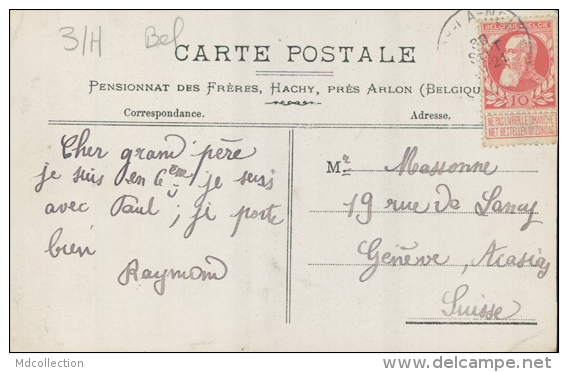 3/H Bel
CARTE POSTALE
PENSIONNAT DES FRÈRES, HACHY, PRÈS ARLON (BELGIQU
Correspondance.
Adresse.
BELGIQUE BELGIË
10
NE PAS LIVRER LE DIMANCHE
NIET BESTELLEN OP ZONDAG
Cher grand père
je suis en 6ème je suis
avec Paul; je porte
bien
Raymond
Mr Massonne
19 rue de Lancy
Genève, Acasias
Suisse
Mdcollection
www.delcampe.net